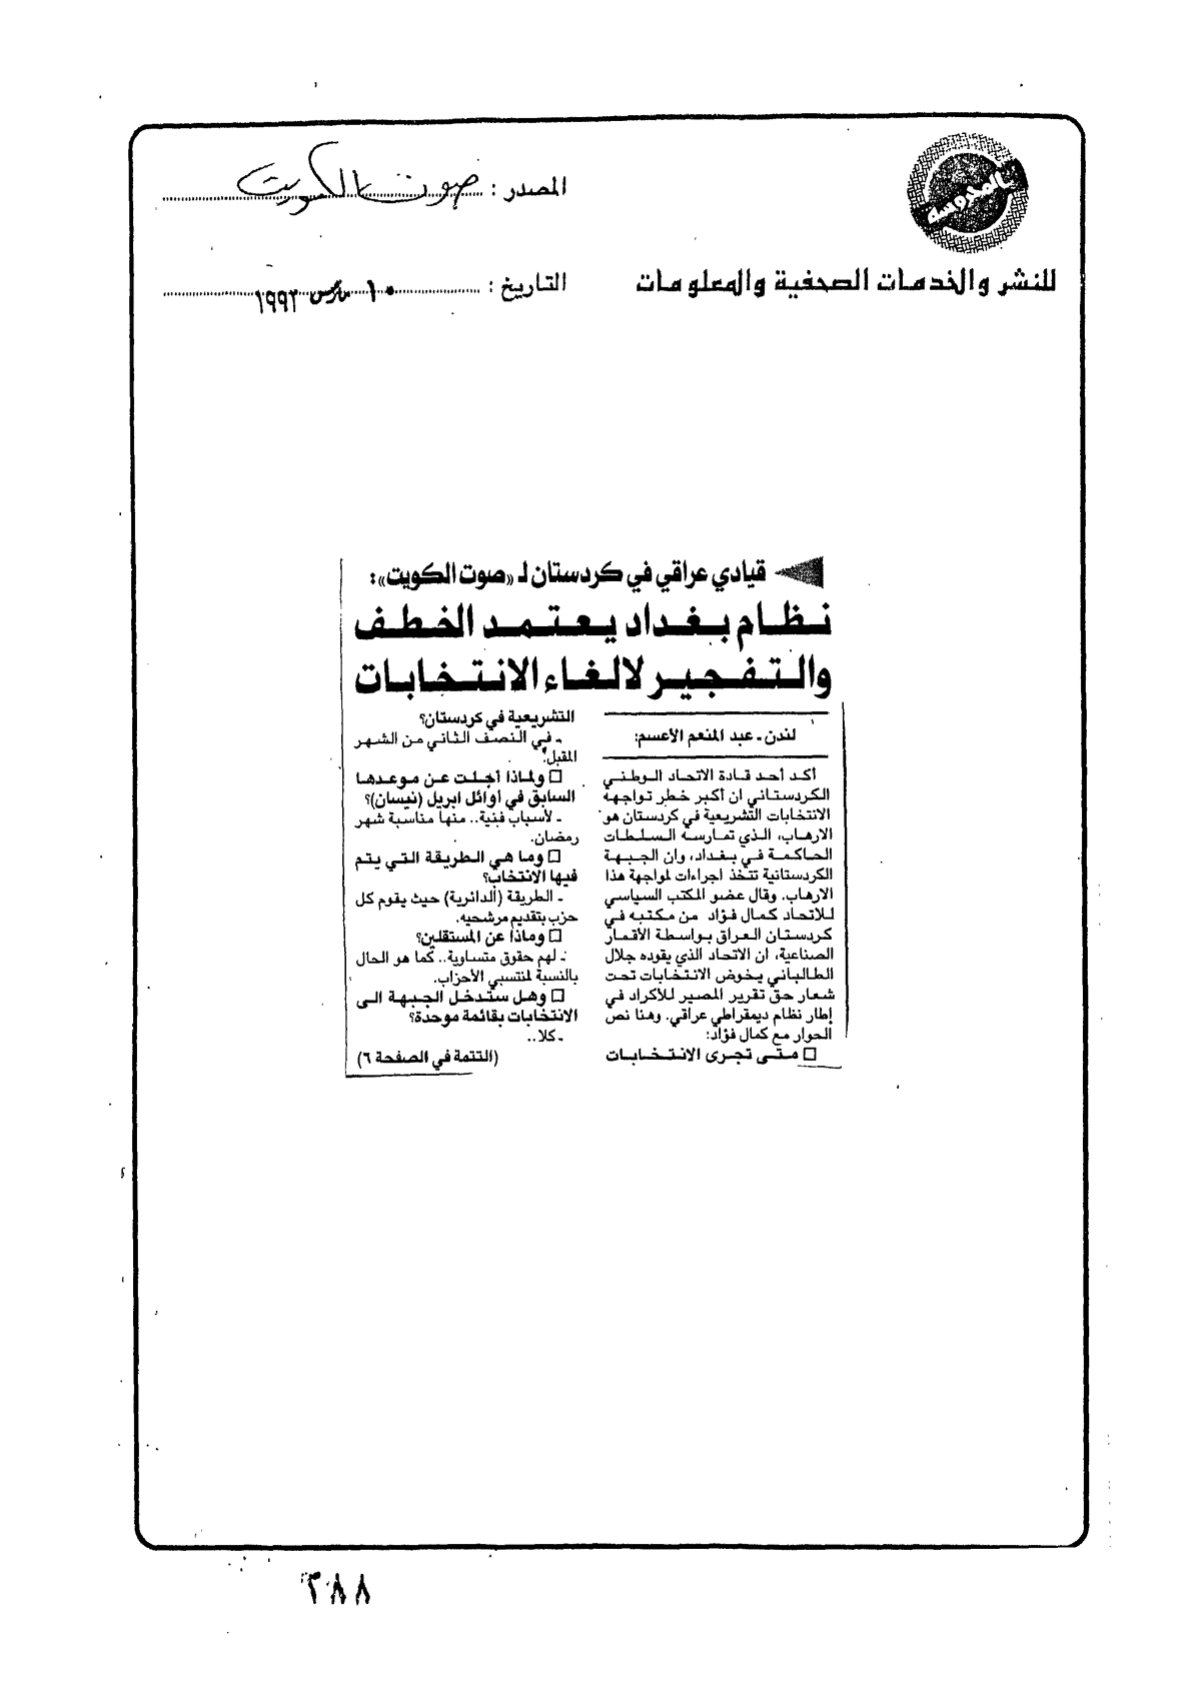 المصدر : صوت الكويت
للنشر والخدمات الصحفية والمعلومات
التاريخ : ١٠ مارس ١٩٩٢
قيادي عراقي في كردستان لـ «صوت الكويت»:
نظام بغداد يعتمد الخطف
والتفجير لالغاء الانتخابات
لندن - عبد المنعم الاعسم:
أكد أحد قادة الاتحاد الوطني
الكردستاني ان أكبر خطر تواجهه
الانتخابات التشريعية في كردستان هو
الارهاب، الذي تمارسه السلطات
الحاكمة في بغداد، وان الجبهة
الكردستانية تتخذ اجراءات لمواجهة هذا
الارهاب. وقال عضو المكتب السياسي
للاتحاد كمال فؤاد من مكتبه في
كردستان العراق بواسطة الأقمار
الصناعية، ان الاتحاد الذي يقوده جلال
الطالباني يخوض الانتخابات تحت
شعار حق تقرير المصير للأكراد في
إطار نظام ديمقراطي عراقي. وهنا نص
الحوار مع كمال فؤاد:
□ متى تجرى الانتخابات
التشريعية في كردستان؟
- في النصف الثاني من الشهر
المقبل.
□ ولماذا أجلت عن موعدها
السابق في أوائل ابريل (نيسان)؟
- لأسباب فنية.. منها مناسبة شهر
رمضان.
□ وما هي الطريقة التي يتم
فيها الانتخاب؟
- الطريقة (الدائرية) حيث يقوم كل
حزب بتقديم مرشحيه.
□ وماذا عن المستقلين؟
- لهم حقوق متساوية.. كما هو الحال
بالنسبة لمنتسبي الأحزاب.
□ وهل ستدخل الجبهة الى
الانتخابات بقائمة موحدة؟
- كلا..
(التتمة في الصفحة ٦)
٢٨٨